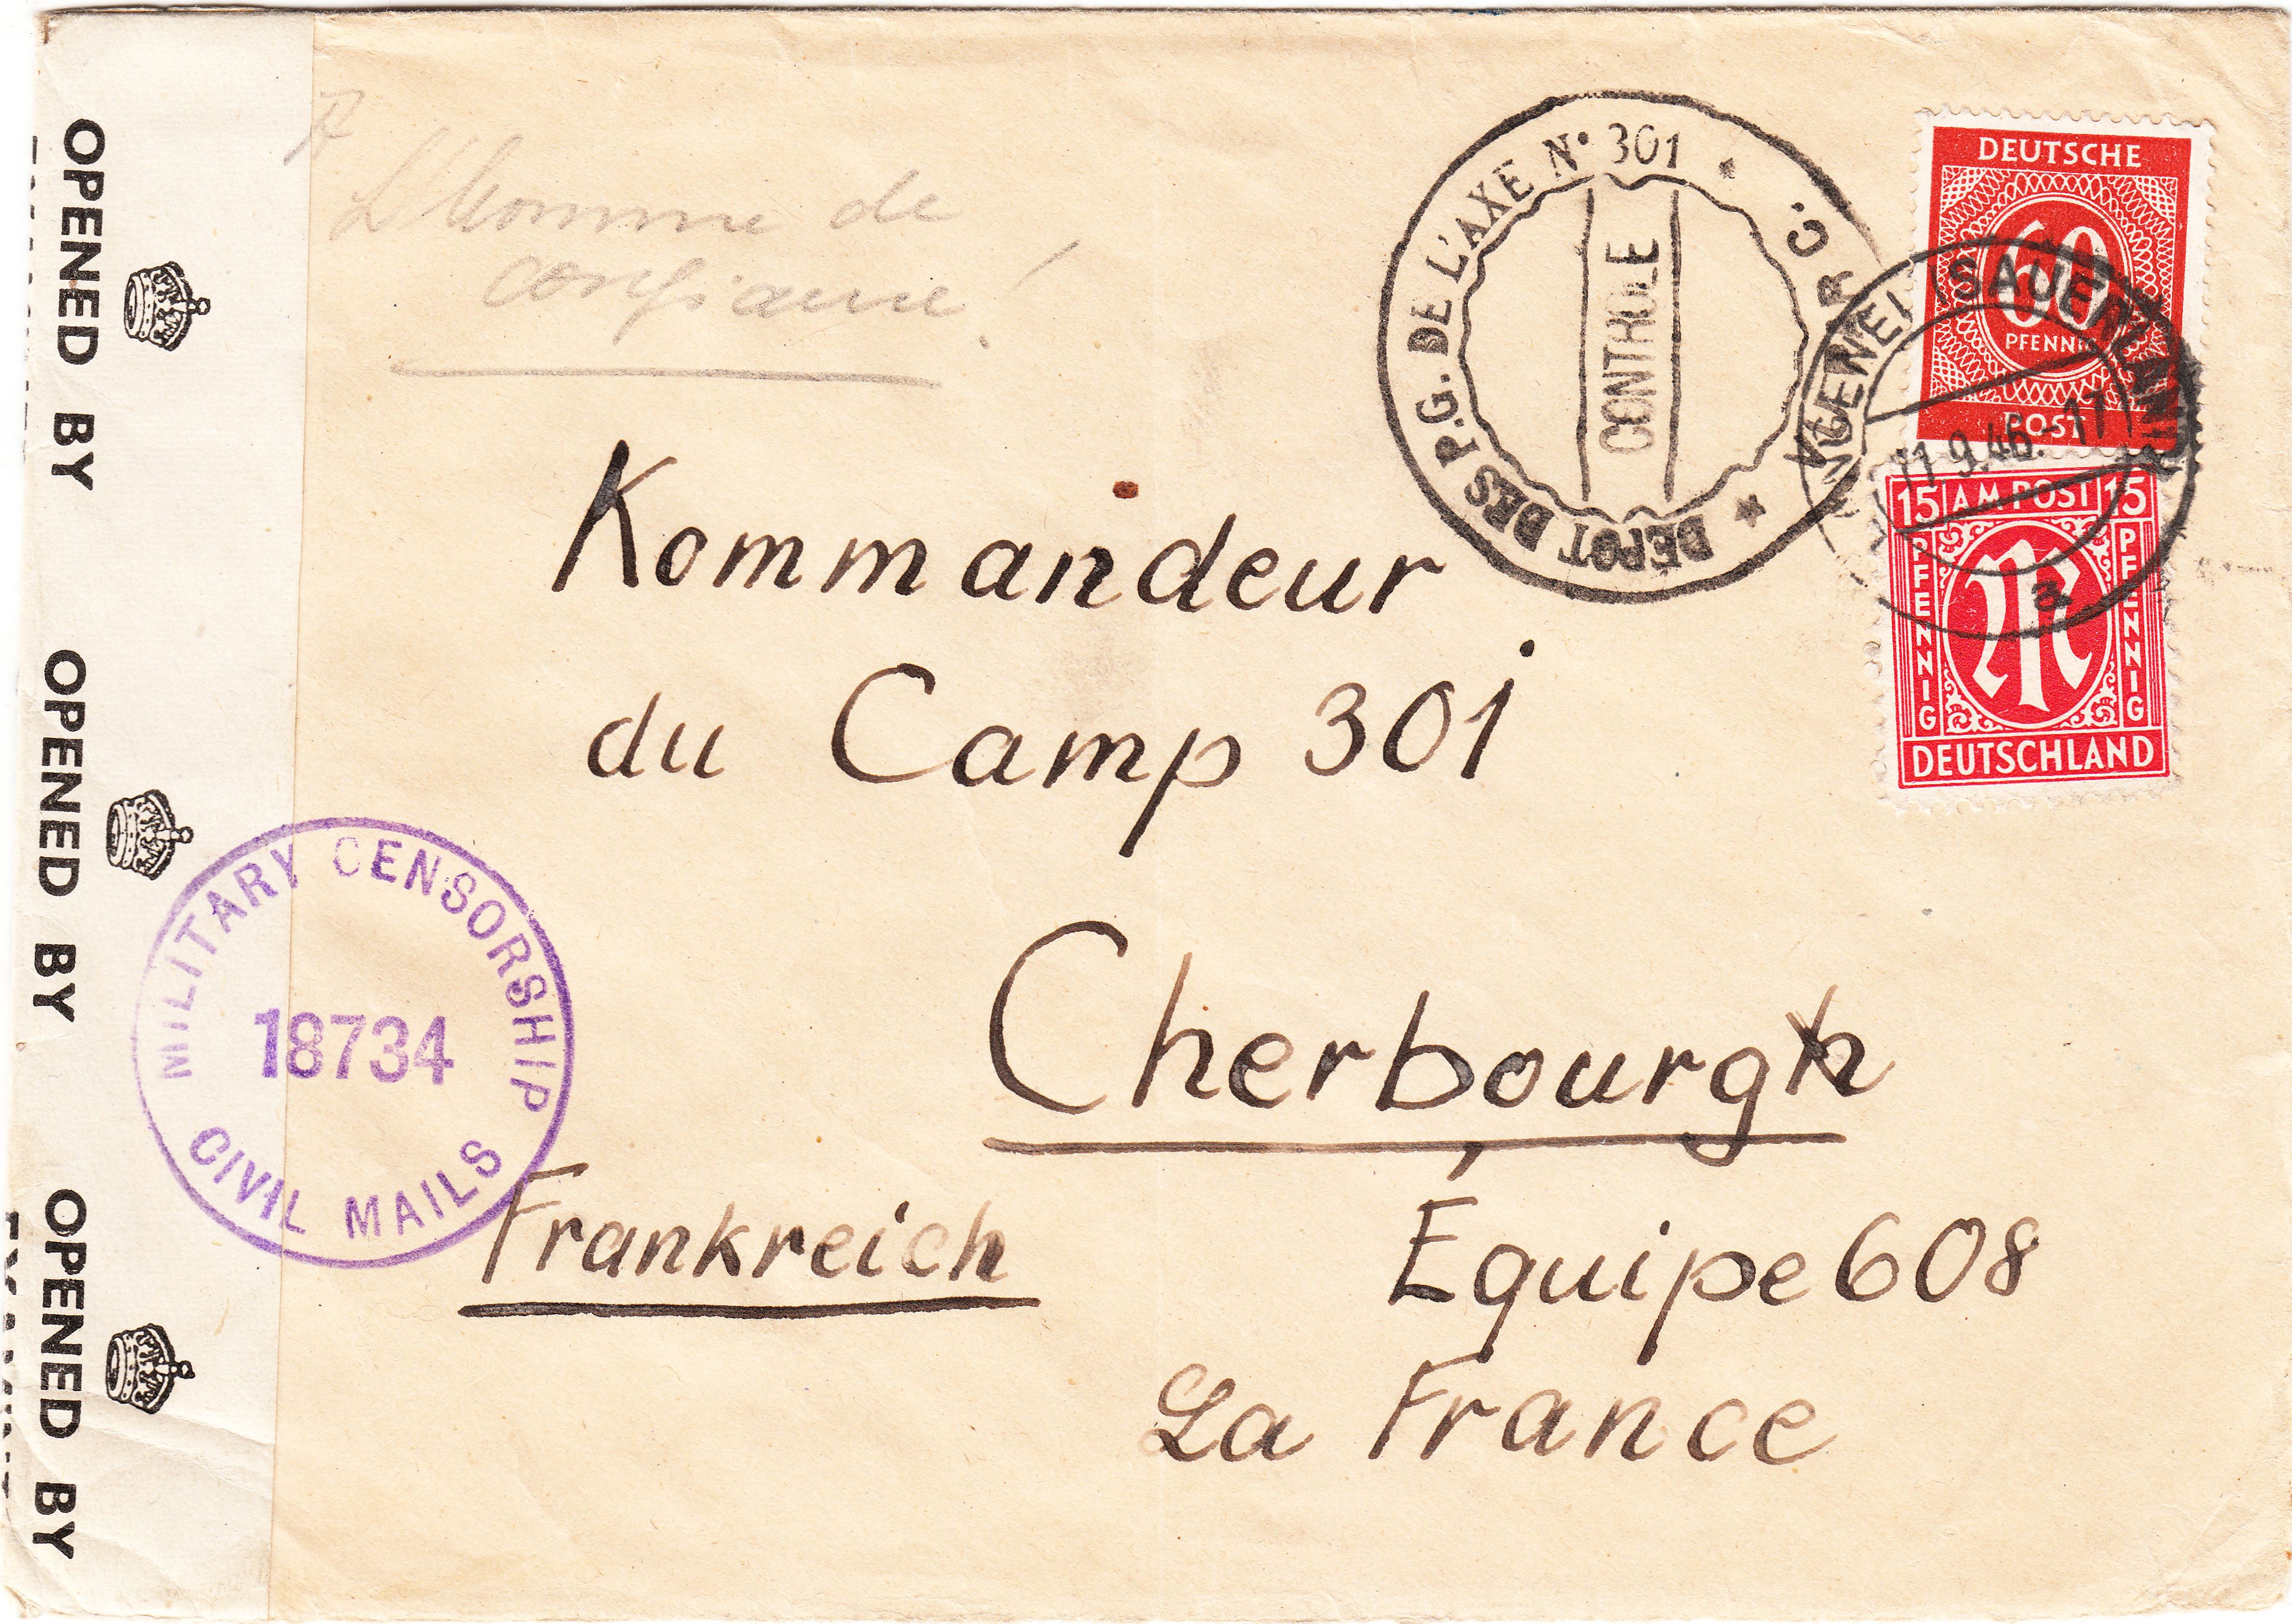 OPENED BY
OPENED BY
OPENED BY
L'homme de
confiance!
DEPOT DES P.G. DE L'AXE N° 301 *
CONTROLE
DEUTSCHE
60
PFENNIG
POST
(SAUERLAND)
11.9.46.-17
a
15 AM POST 15
PFENNIG
PFENNIG
M
DEUTSCHLAND
Kommandeur
du Camp 301
Cherbourg
Frankreich
Équipe 608
La France
MILITARY CENSORSHIP
18734
CIVIL MAILS